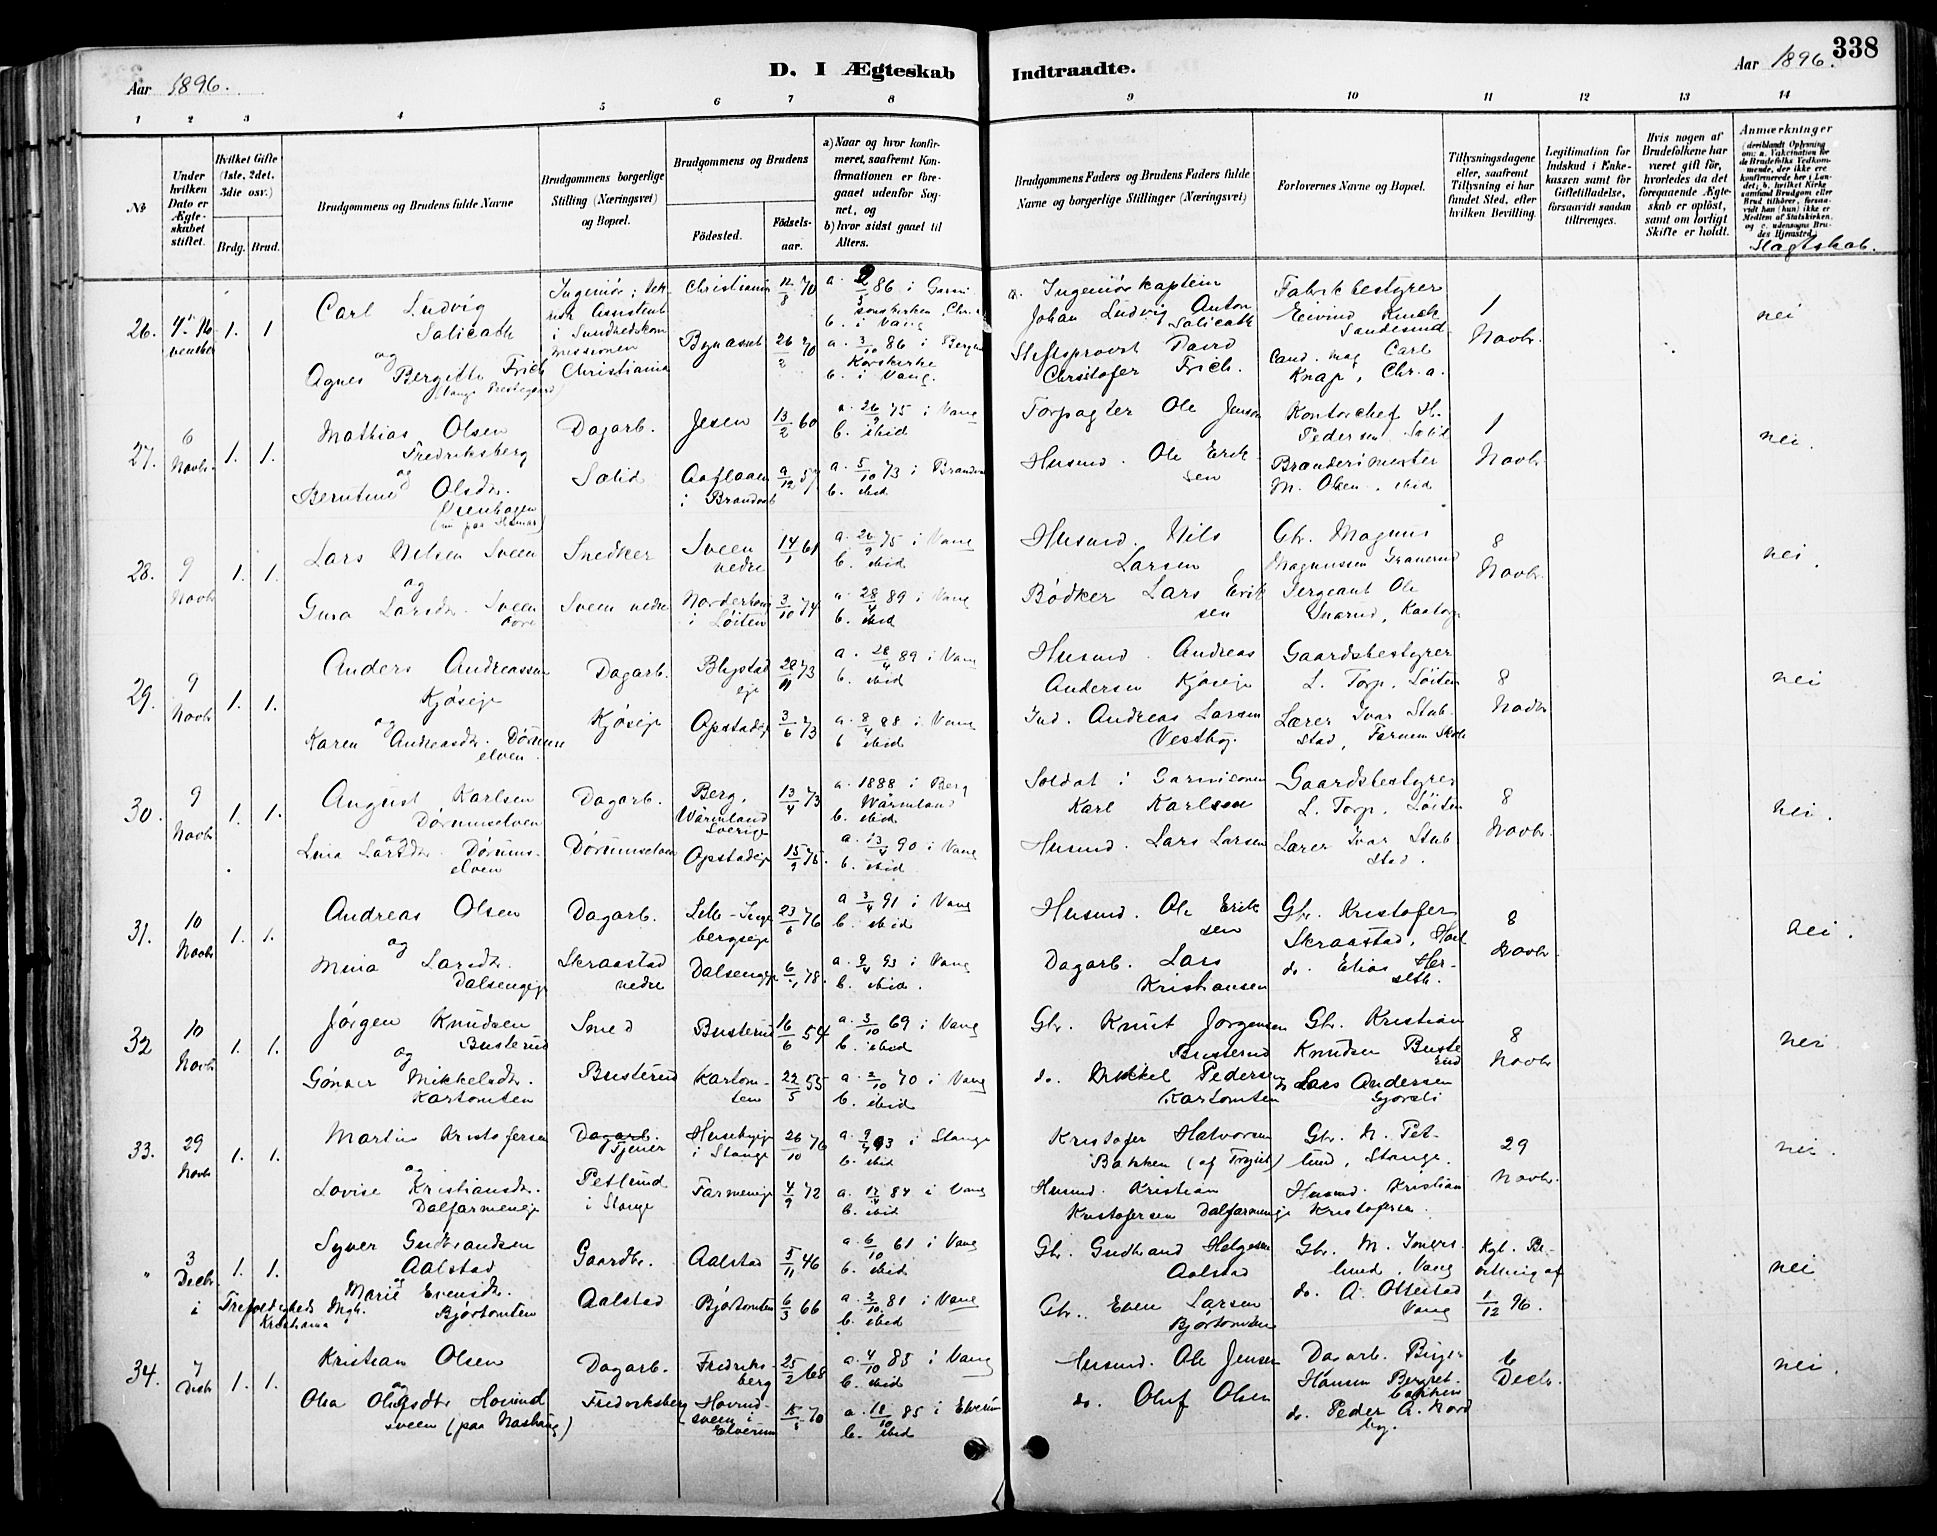 338
Aar 1896.
D. I Ægteskab Indtraadte.
Aar 1896.
1 2 3 4 5 6 7 8 9 10 11 12 13 14
No
Under hvilken Dato er Ægteskabet stiftet.
Hvilket Gifte (1ste, 2det, 3die osv.)
Brdg. Brud.
Brudgommens og Brudens fulde Navne
Brudgommens borgerlige Stilling (Næringsvei) og Bopæl.
Brudgommens og Brudens
Fødested.
Fødselsaar.
a) Naar og hvor konfirmeret, saafremt Konfirmationen er foregaaet udenfor Sognet, og
b) hvor sidst gaaet til Alters.
Brudgommens Faders og Brudens Faders fulde Navne og borgerlige Stillinger (Næringsvei)
Forlovernes Navne og Bopæl.
Tillysningsdagene eller, saafremt Tillysning ei har fundet Sted, efter hvilken Bevilling.
Legitimation for Indskud i Enkekassen samt for Giftetilladelse, forsaavidt saadan tiltrænges.
Hvis nogen af Brudefolkene har været gift før, hvorledes da det foregaaende Ægteskab er opløst, samt om lovligt Skifte er holdt.
Anmærkninger
(deriblandt Oplysning om: a. Vakcination for de Brudefolks Vedkommende, der ikke ere konfirmerede her i Landet; b. hvilket Kirkesamfund Brudgom eller Brud tilhører, forsaavidt han (hun) ikke er Medlem af Statskirken, og c. udensogns Brudes Hjemsted.)
Slagtskab.
26. 4. November 1. 1
Carl Ludvig Salicath
og
Agnes Bergitte Frich
(Vangs Prestegaard)
Ingeniör; Assistent i Sundhedskommissionen Christiania
Christiania 12/8 70
Bynæsset 26/2 70
a. 2/5 86 i Garnisonskirken, Chr.a
b. i Vang
a. 3/10 86 i Bergen Korskirke
b. i Vang.
Ingeniörkaptein Johan Ludvig Anton Salicath
Stiftsprovst David Christofer Frich.
Fabrikbestyrer Eivind Knap Sandesund
Cand. mag Carl Knap, Chr.a.
1 Novbr.
nei
27. 6 Novbr. 1. 1.
Mathias Olsen Fredriksberg
og
Berntine Olsdr. Evenhagen
(nu paa Hamar)
Dagarb. Solid
Jesen 13/2 60
Aaflaaen i Brandval 9/12 57
a. 26/9 75 i Vang
b. ibid
a. 5/10 73 i Brandval
b. ibid
Forpagter Ole Jensen
Husmd. Ole Eriksen
Kontorchef H. Pedersen. Solid
Brænderimester M. Olsen, ibid
1 Novbr
nei.
28. 9 Novbr 1. 1.
Lars Nilsen Sveen
og
Guro Larsdr. Sveen øvre
Snedker Sveen nedre
Sveen nedre 14/1 61
Norderhov i Løiten 3/10 74
a. 26/9 75 i Vang
b. ibid
a. 28/4 89 i Vang
b. ibid
Husmd. Nils Larsen
Bødker Lars Eriksen
Gbr. Magnus Magnussen Granerud
Sergeant Ole Snarud,
8 Novbr.
nei.
29. 9 Novbr 1. 1.
Anders Andreassen Kjöseje
og
Karen Andreasdr. Dørumselven
Dagarb. Kjöseje
Blystadeje 28/11 73
Opstadeje 3/6 73
a. 28/4 89 i Vang
b. ibid
a. 8/4 88 i Vang
b ibid
Husmd. Andreas Andersen Kjöseje
Ind. Andreas Larsen Vesthøj.
Gaardsbestyrer L. Torp, Löiten
Lærer Ivar Stubstad, Farmen Skole
8 Novbr
nei
30. 9 Novbr 1. 1.
August Karlsen Dørumselven
og
Lina Larsdr. Dørumselven
Dagarb. Dørumselven
Berg, Wärmland Sverige 13/4 73
Opstadeje 15/9 75.
a. 1888 i Berg Wärmland
b. ibid
a. 13/4 90 i Vang
b. ibid
Soldat i Garnisonen Karl Karlsson
Husmd. Lars Larsen
Gaardsbestyrer L. Torp, Löiten
Lærer Ivar Stubstad.
8 Novbr.
nei.
31. 10 Novbr 1. 1.
Andreas Olsen
og
Mina Larsdr. Dalsengeje
Dagarb. Skraastad nedre
Lille-Ingebergseje 23/6 76
Dalsengeje 6/1 78.
a 3/4 91 i Vang
b. ibid
a. 9/4 93 i Vang
b. ibid.
Husmd. Ole Eriksen
Dagarb. Lars Kristiansen
Gbr. Kristofer Skraastad,
do. Elias Herseth.
8 Novbr.
nei.
32 10 Novbr 1. 1.
Jörgen Knudsen Busterud
og
Gönner Mikkelsdr. Kartomten
Smed Busterud
Busterud 16/6 54
Kartomten 22/5 55
a. 3/10 69 i Vang
b. ibid
a. 2/10 70 i Vang
b. ibid
Gbr. Knut Jorgensen Busterud
do. Mikkel Pedersen Kartomten
Gbr. Kristian Knudsen Busterud
do Lars Andersen Gjorsli
8 Novbr
nei.
33. 29 Novbr 1. 1.
Martin Kristofersen
og
Lovise Kristiansdr. Dalfarmeneje
Dagarb. Tjener Petlund i Stange
Husebyeje i Stange 26/10 76
Farmeneje 4/9 72
a. 9/4 93 i Stange
b. ibid
a. 12/4 84 i Vang
b. ibid
Kristofer Halvorsen Bakken (af Trysil)
Husmd. Kristian Kristofersen Dalfarmeneje
Gbr. N. Petlund, Stange.
Husmd. Kristian Kristofersen
29 Novbr.
nei.
" 3 Decbr. i Trefoldigheds Mgh. Kristiania 1. 1.
Syver Gudbrandsen Aalstad
og
Marie Evensdr. Bjørtomten
Gaardbr. Aalstad
Aalstad 5/11 46
Bjørtomten 6/3 66
a. 6/10 61 i Vang
b. ibid
a. 2/10 81 i Vang
b. ibid
Gbr. Gudbrand Helgesen Aalstad
Gbr. Even Larsen Bjørtomten
Gbr. M. Imerslund, Vang
do. A. Ottestad Vang
Kgl. Bevilling af 1/12 96.
nei
34. 7 Decbr 1. 1.
Kristian Olsen
og
Olea Olufsdtr Hovindsveen (paa Nashaug)
Dagarb. Fredriksberg
Fredriksberg 25/2 68
Hovindsveen i Elverum 15/5 70
a. 4/10 85 i Vang
b. ibid
a. 18/10 85 i Elverum
b. ibid
Husmd. Ole Jensen
do. Oluf Olsen
Dagarb. Birger Hansen Bergsetbakken
do. Peder A. Nordby.
6 Decbr.
nei.